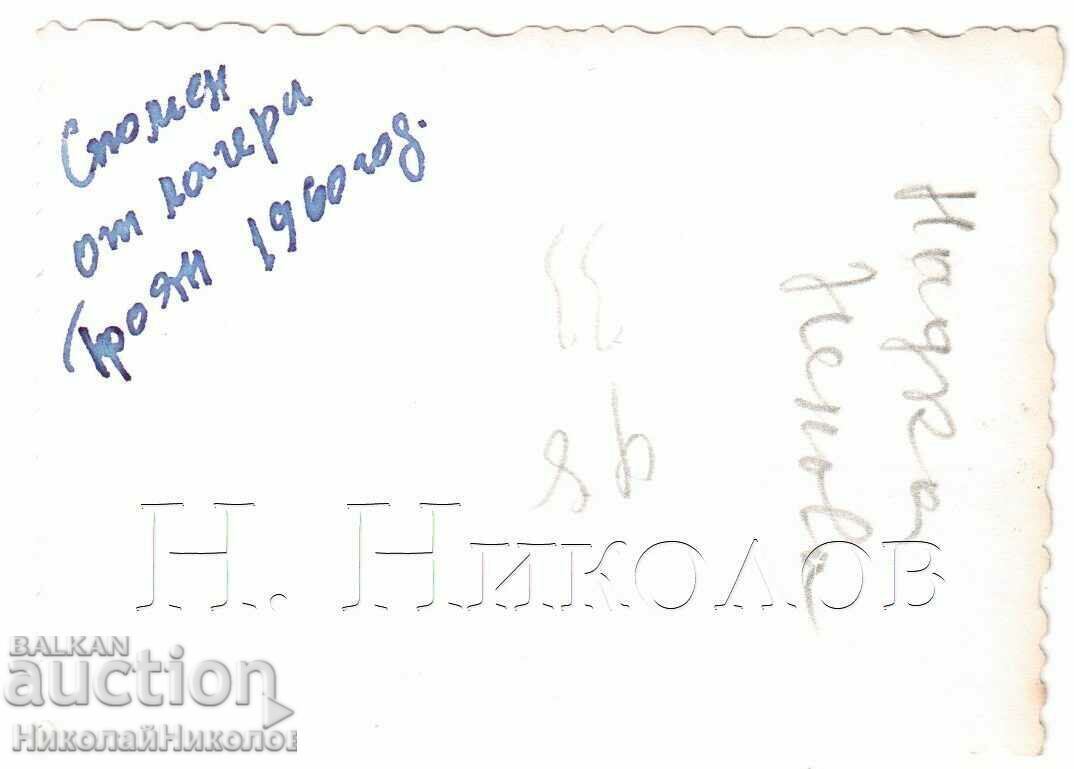 Спомен
от лагери
Троян 1960 год.
Надка
Ненова
Н. Николов
BALKAN
auction
НиколайНиколов